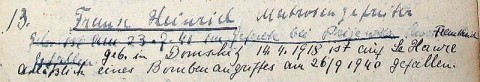 13. Franse Heinrich Matrosengefreiter
ist am 23.7.41 im Gefecht bei
gefallen. geb. in 14.4.1918 ist auf Le Havre
anläßlich eines Bombenangriffes am 26/9 1940 gefallen.